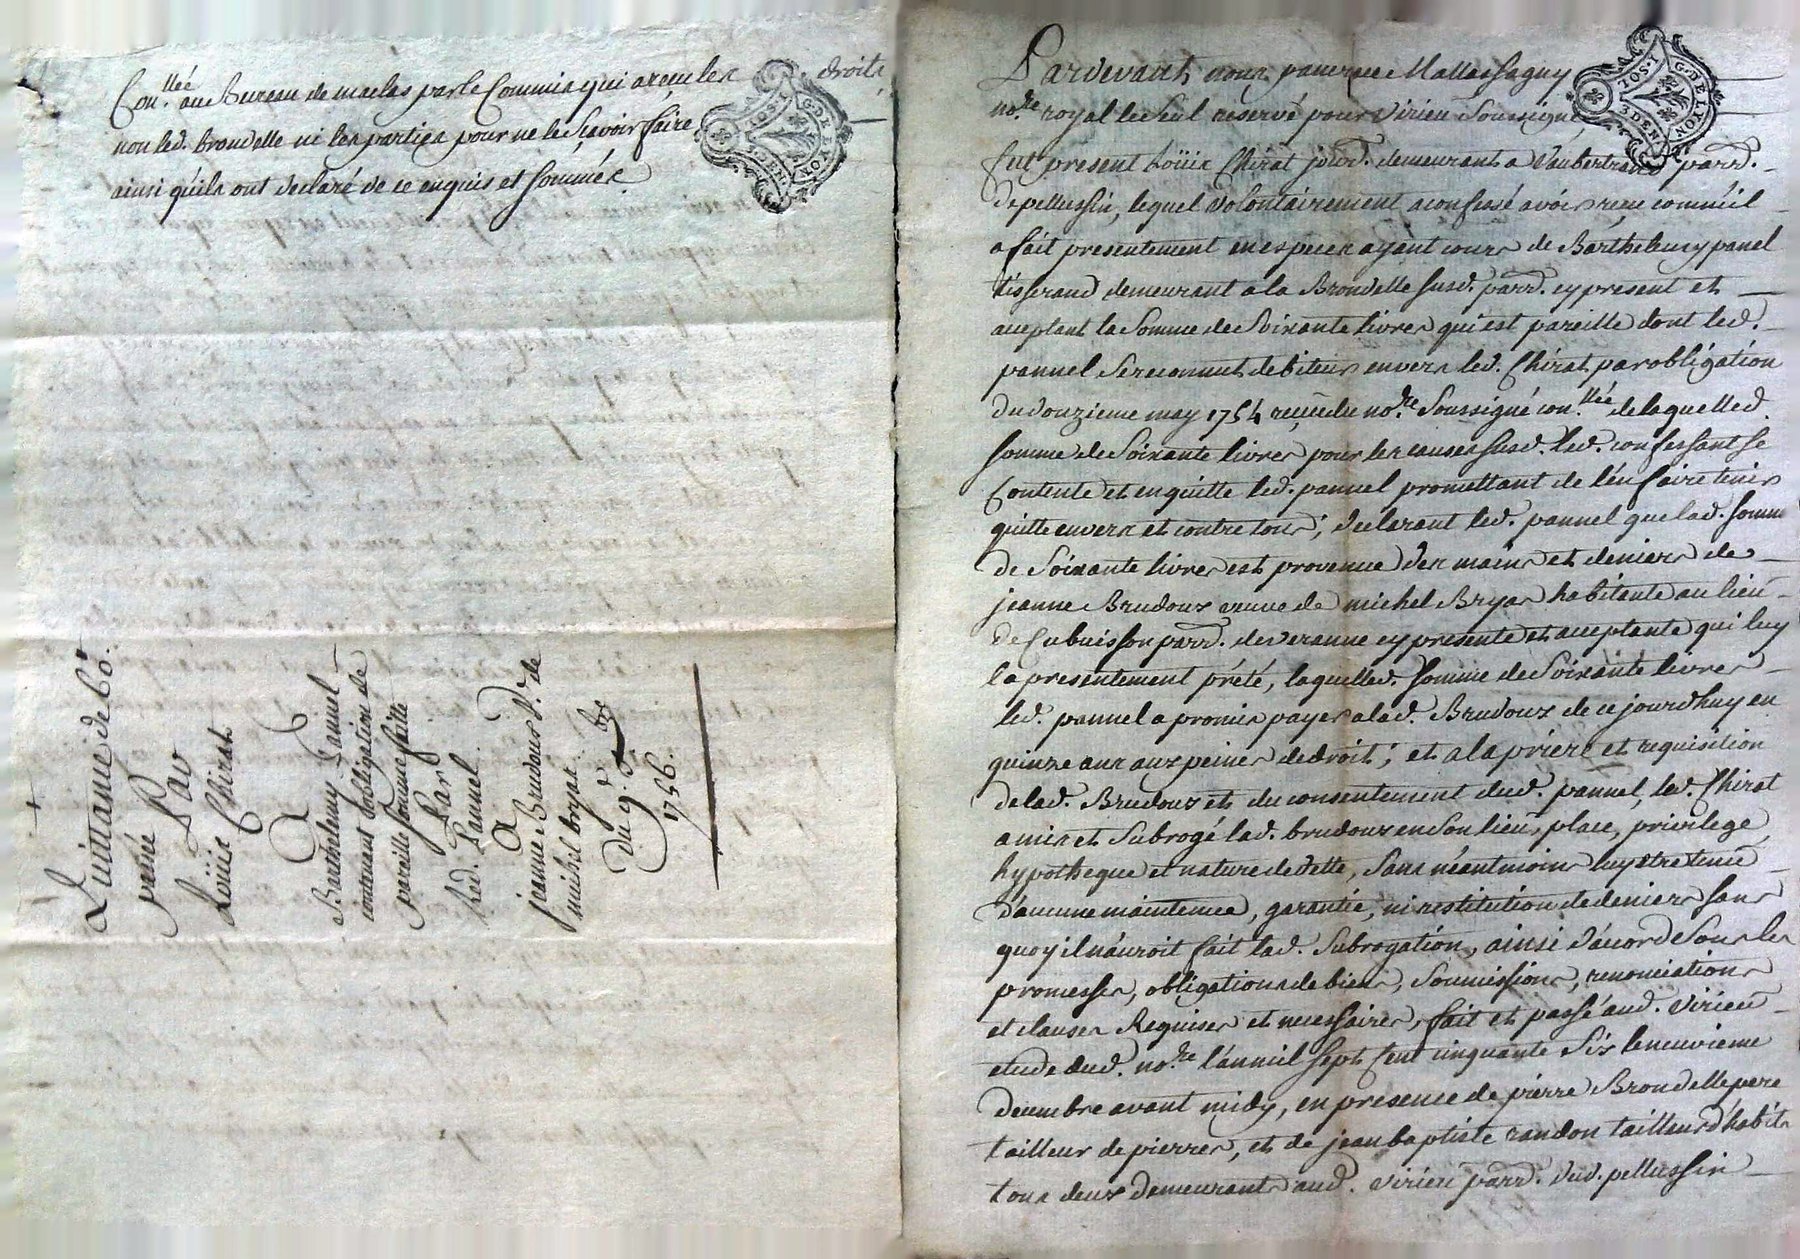 Con.llée au Bureau de maclas par le Commis qui a reçu les droits
non led. brondelle ni les parties pour ne le sçavoir faire
ainsi qu'ils ont declaré de ce enquis et sommés.
Quittance de 60.tt
passé Par
Loüis Chirat
A
Barthelemy Pannel
contenant obligation de
pareille somme faitte
Par
led. Pannel
A
jeanne Brudoux v.e de
michel bryas.
Du 9.e Xbre
1756.
Pardevant nous Mallassagny
no.re royal le seul reservé pour Virieu soussigné
fut present Loüis Chirat jour.d demeurant a Vaubertrand parr.
de pellussin, lequel volontairement a confessé avoir reçu comme il
a fait presentement en especes ayant cours de Barthelemy panel
tisserand demeurant a la Brondelle susd. parr. cy present et
aceptant la somme de soixante livres qui est pareille dont led.
pannel se reconnut debiteur envers led. Chirat par obligation
du douzieme may 1754 reçüe du no.re soussigné con.llée de laquelle d.
somme de soixante livres pour les causes susd. led. confessant se
contente et en quitte led. pannel promettant de l'en faire tenir
quitte envers et contre tous; declarant led. pannel que lad. somme
de soixante livres est provenue des mains et deniers de
jeanne Brudoux veuve de michel Bryas habitante au lieu
de Cubuisson parr. de veranne cy presente et acceptante qui luy
la presentement prété, laquelle d. somme de soixante livres
led. pannel a promis payer a lad. Brudoux de ce jourdhuy en
quinze ans aux peines de droit; et a la priere et requisition
de lad. Brudoux et du consentement dud. pannel, led. Chirat
a mis et subrogé lad. brudoux en son lieu, place, privilege,
hypotheque et nature de dette, sans néantmoins luy etre tenu
d'aucune maintenue, garantie, ni restitution de deniers sans
quoy il n'auroit fait lad. subrogation, ainsi d'acord sous les
promesses, obligations de biens, soumissions, renonciations
et clauses Requises et necessaires, fait et passé aud. Virieu
etude dud. no.re l'an mil sept cent cinquante six le neuvieme
decembre avant midy, en presence de pierre Brondelle pere
tailleur de pierres, et de jean baptiste randon tailleur d'habits
tous deux demeurant aud. Virieu parr. dud. pellussin